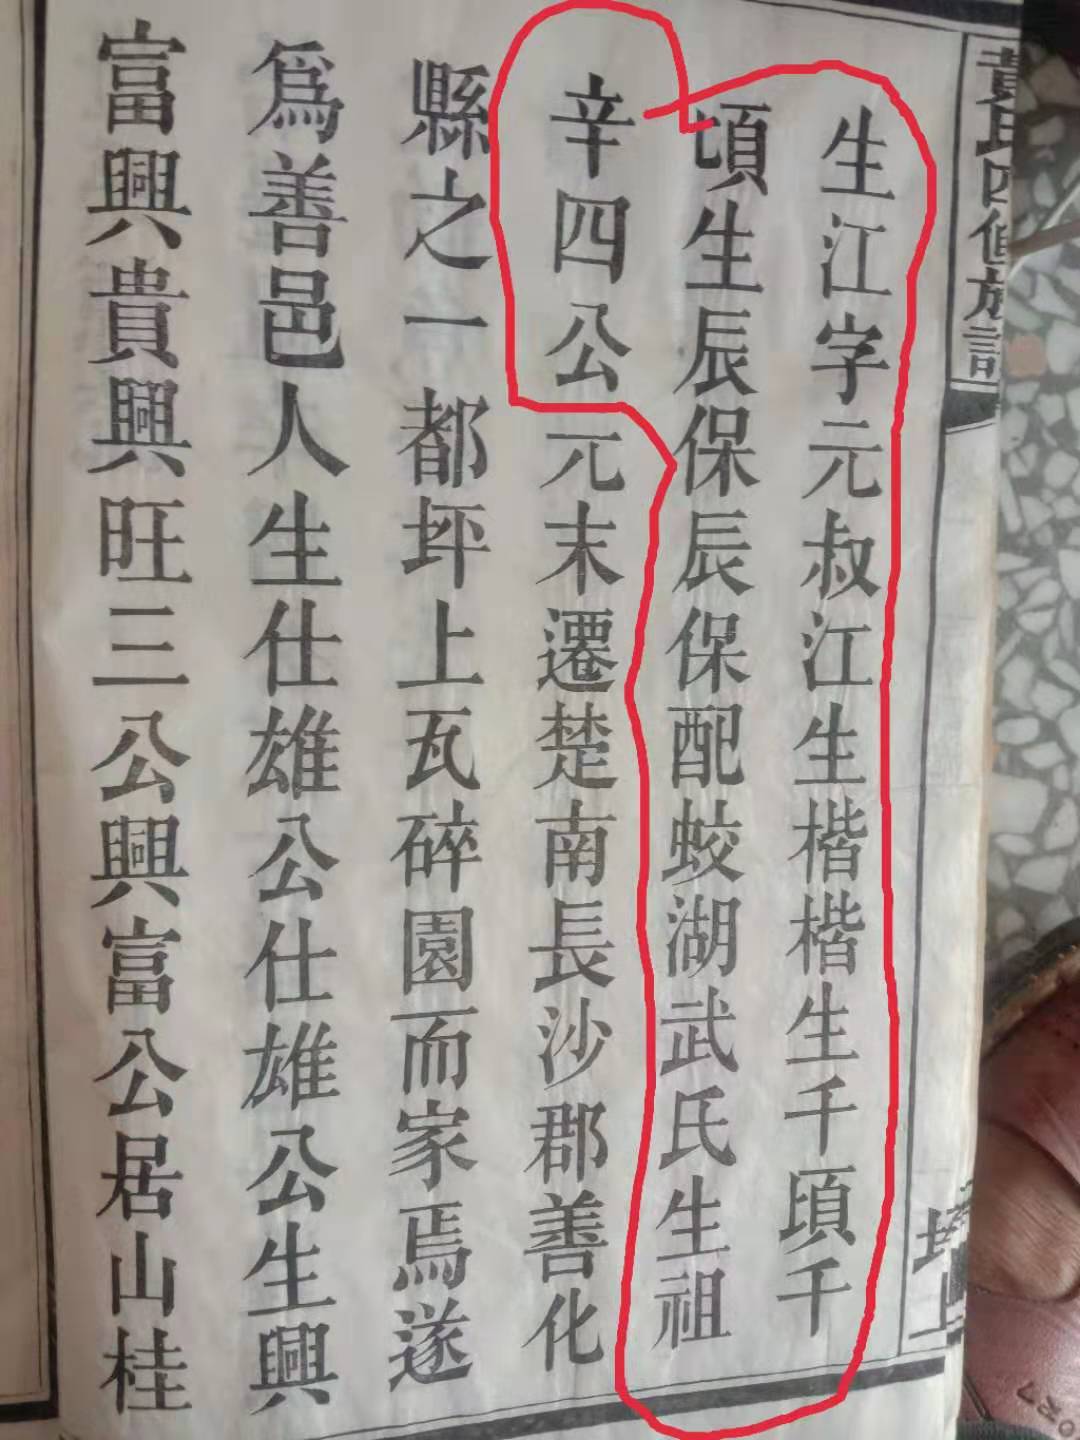 生江字元叔江生楷楷生千頃千
頃生辰保辰保配蛟湖武氏生祖
辛四公元末遷楚南長沙郡善化
縣之一都坪上瓦碎園而家焉遂
爲善邑人生仕雄公仕雄公生興
富興貴興旺三公興富公居山桂